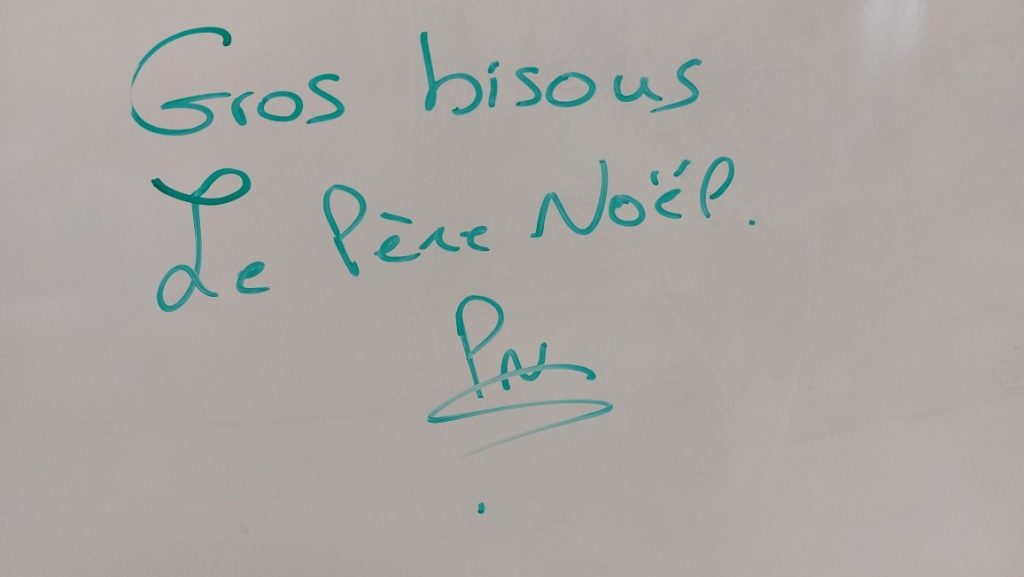 Gros bisous
Le Père Noël.
PN